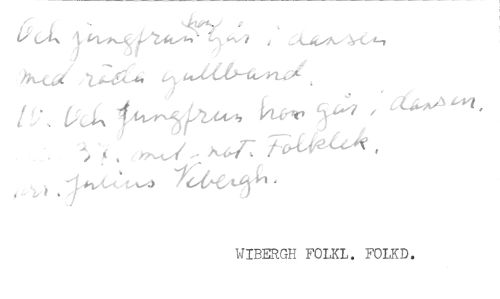 Och jungfrun hon går i dansen
med röda gullband.
10. Och jungfrun hon går i dansen.
37. mel-not. Folklek.
arr. Julius Vibergh.
WIBERGH FOLKL. FOLKD.